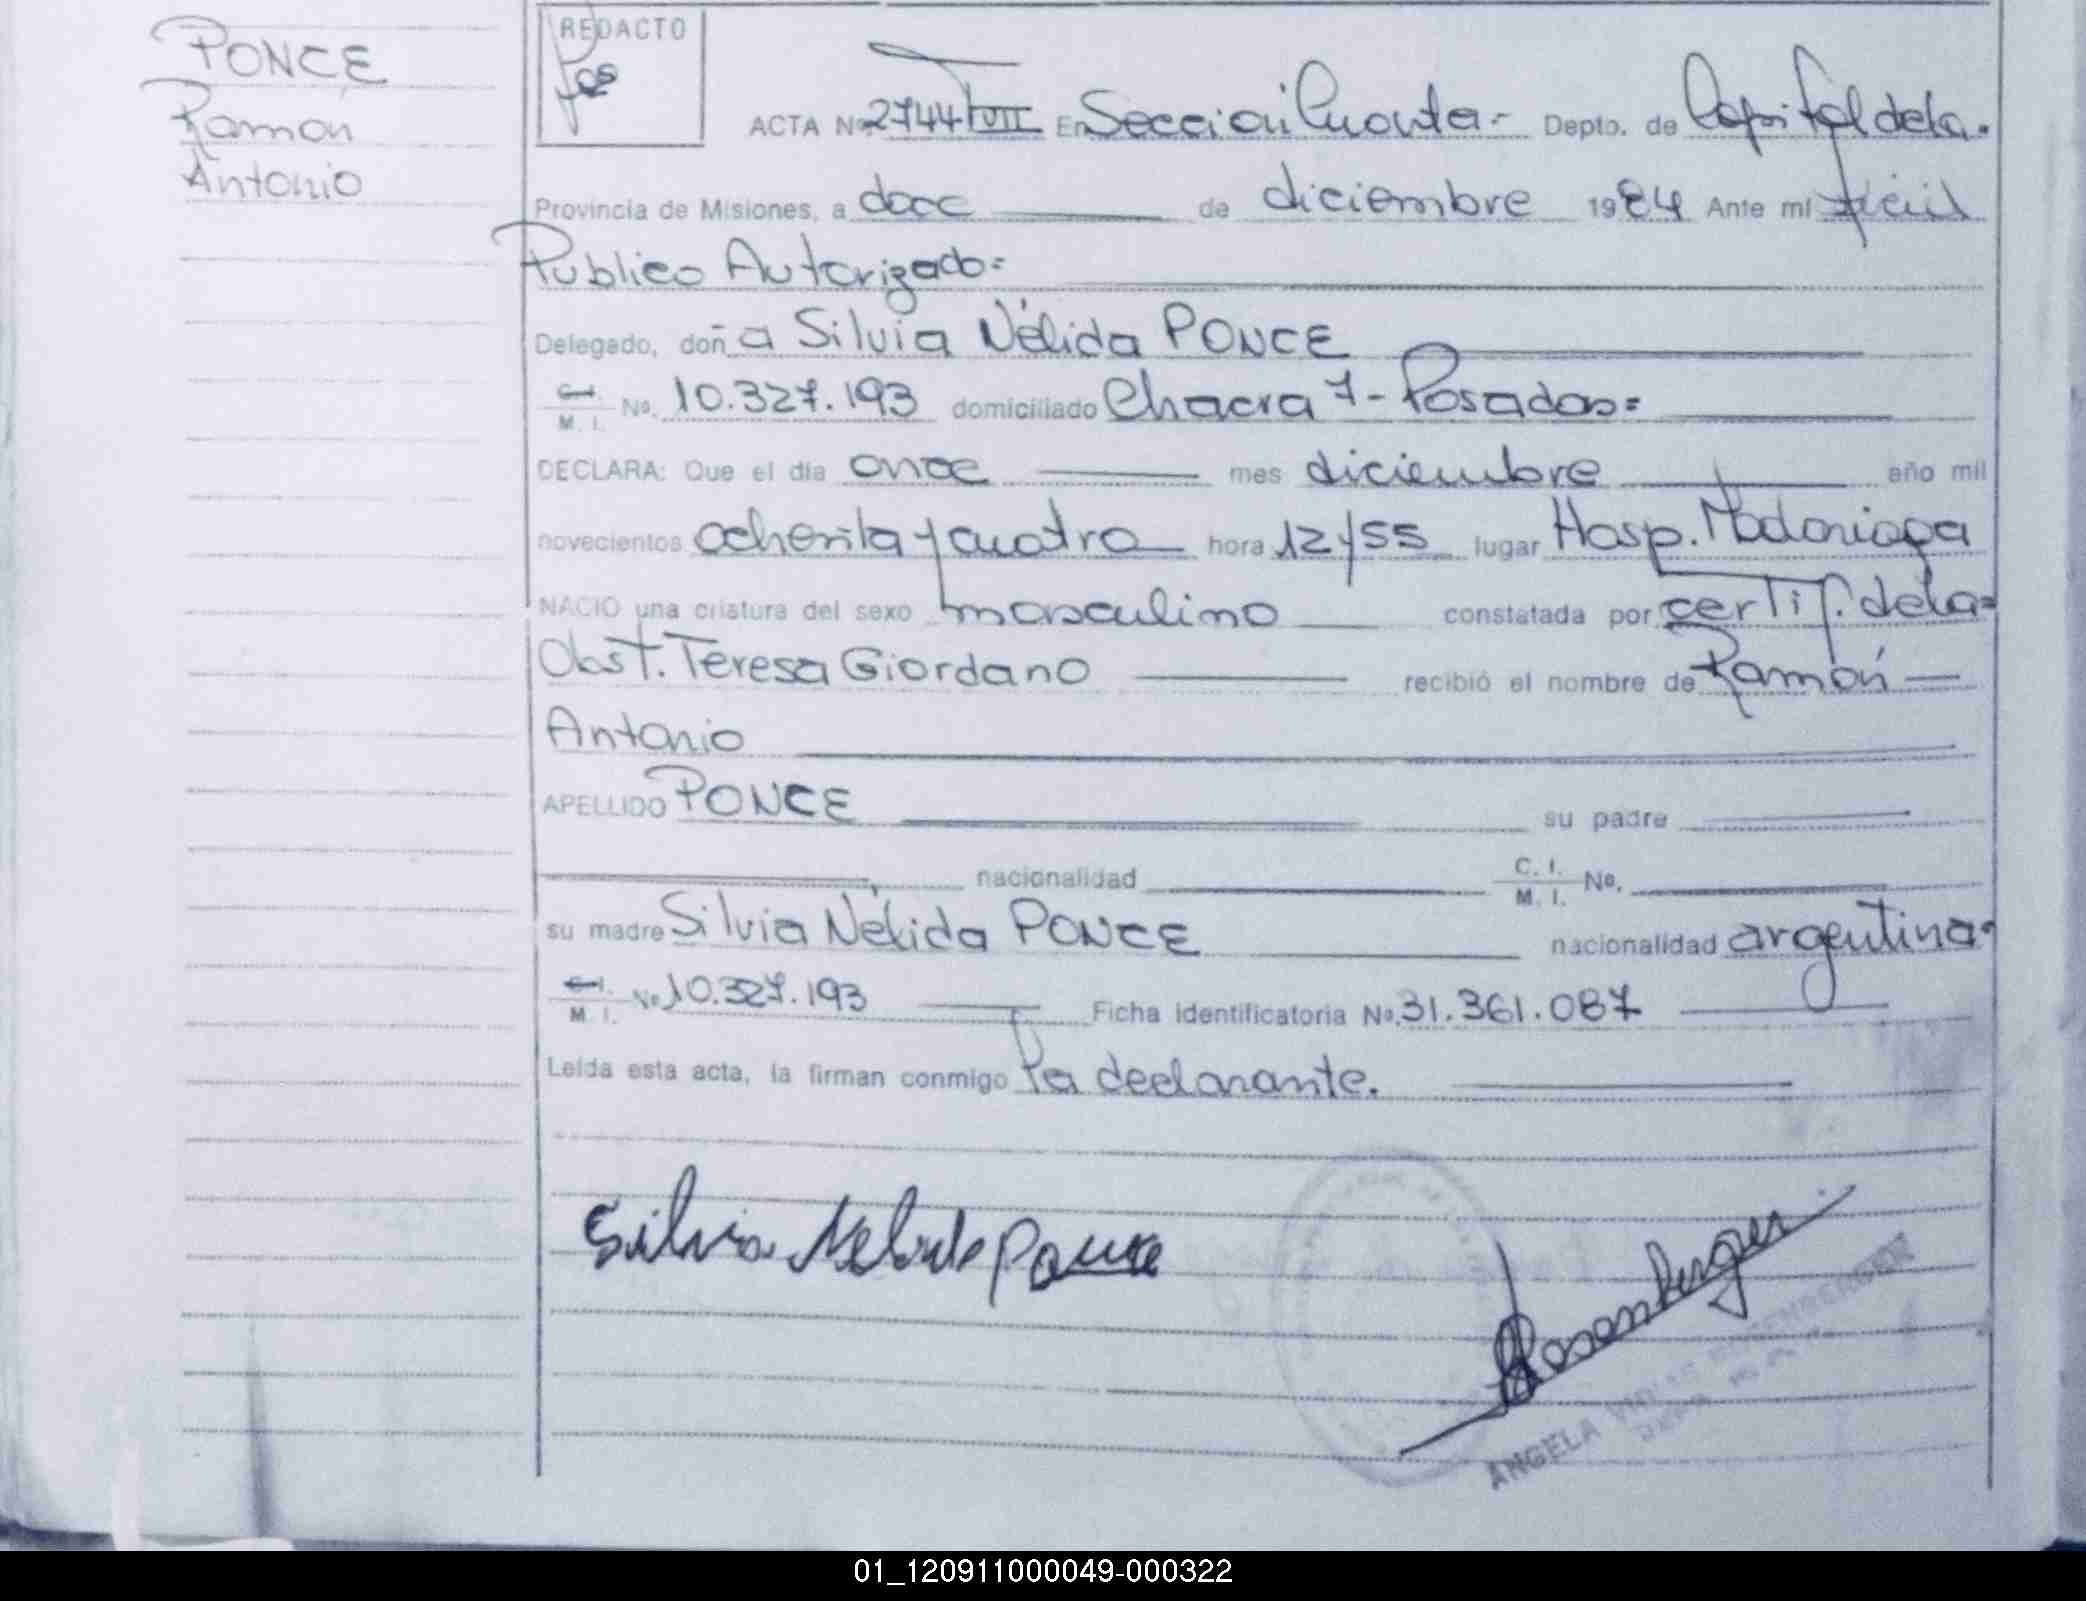 PONCE
Ramón
Antonio
REDACTO
ACTA Nº 2744 TVIII En Sección Cuarta - Depto. de Capital de la.
Provincia de Misiones, a doce de diciembre 1984 Ante mí
Publico Autorizado=
Delegado, doña Silvia Nélida PONCE
C.I. M. I. No. 10.327.193 domiciliado Chacra 7 - Posadas=
DECLARA: Que el día once mes diciembre año mil
novecientos ochenta y cuatro hora 12 y 55 lugar Hosp. Madariaga
NACIO una criatura del sexo masculino constatada por certif. de la=
Obst. Teresa Giordano recibió el nombre de Ramón
Antonio
APELLIDO PONCE su padre
nacionalidad C. I. M. I. No.
su madre Silvia Nélida PONCE nacionalidad argentina.
C.I. M. I. No 10.327.193 Ficha identificatoria No. 31.361.087
Leída esta acta, la firman conmigo la declarante.
Silvia Nelida Ponce
Rosenberger
ANGELA
01_120911000049-000322